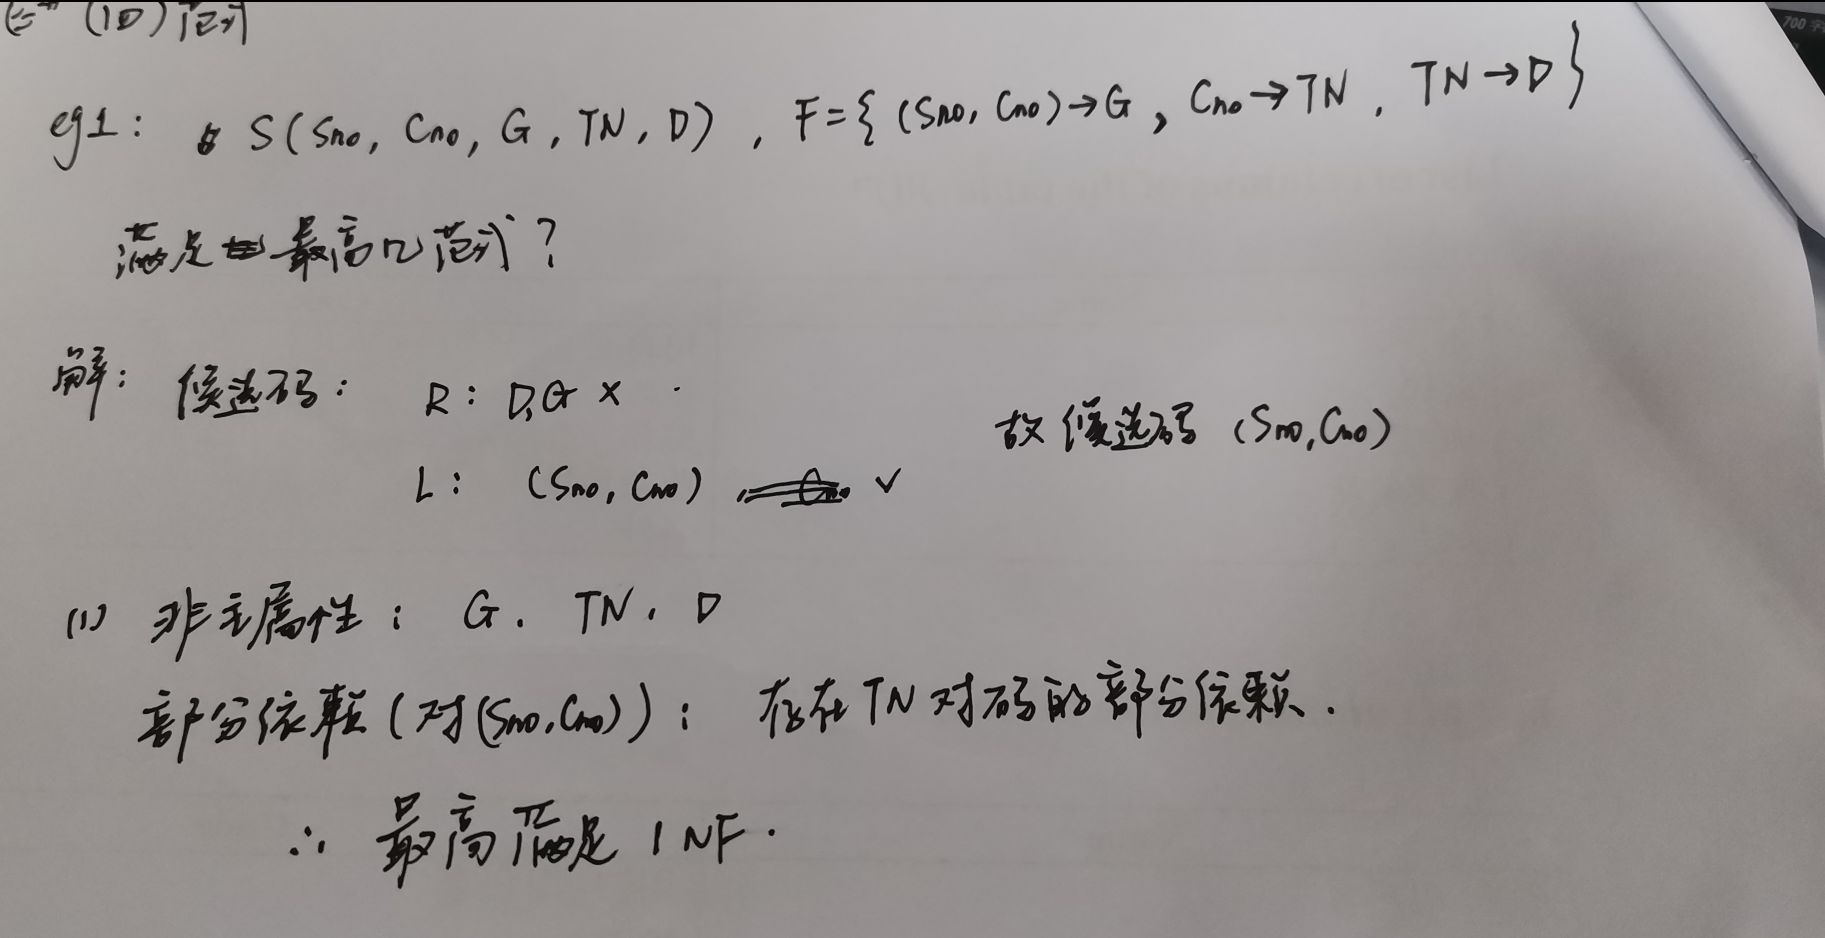 (1回)范式
eg1: S(Sno, Cno, G, TN, D), F={(Sno, Cno)→G, Cno→TN, TN→D}
满足最高几范式?
解: 候选码: R: D,G ×
L: (Sno, Cno) ✓ 故候选码 (Sno,Cno)
(1) 非主属性: G. TN. D
部分依赖(对(Sno,Cno)): 存在TN对码的部分依赖.
∴ 最高满足 1NF.